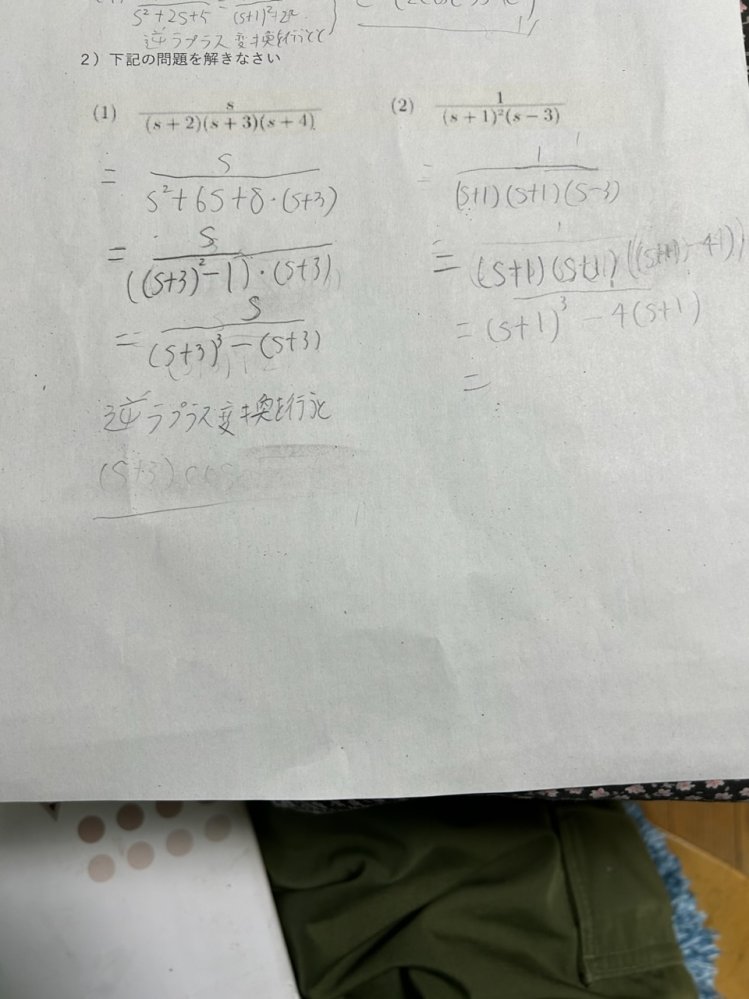 s²+2s+5 = (s+1)²+2²
逆ラプラス変換を行うと
2）下記の問題を解きなさい
(1) s/((s+2)(s+3)(s+4))
= s/(s²+6s+8・(s+3))
= s/(((s+3)²-1)・(s+3))
= s/((s+3)³-(s+3))
逆ラプラス変換を行うと
(s+3)cos
(2) 1/((s+1)²(s-3))
= 1/((s+1)(s+1)(s-3))
= 1/((s+1)(s+1)((s+1)-4))
= (s+1)³-4(s+1)
=